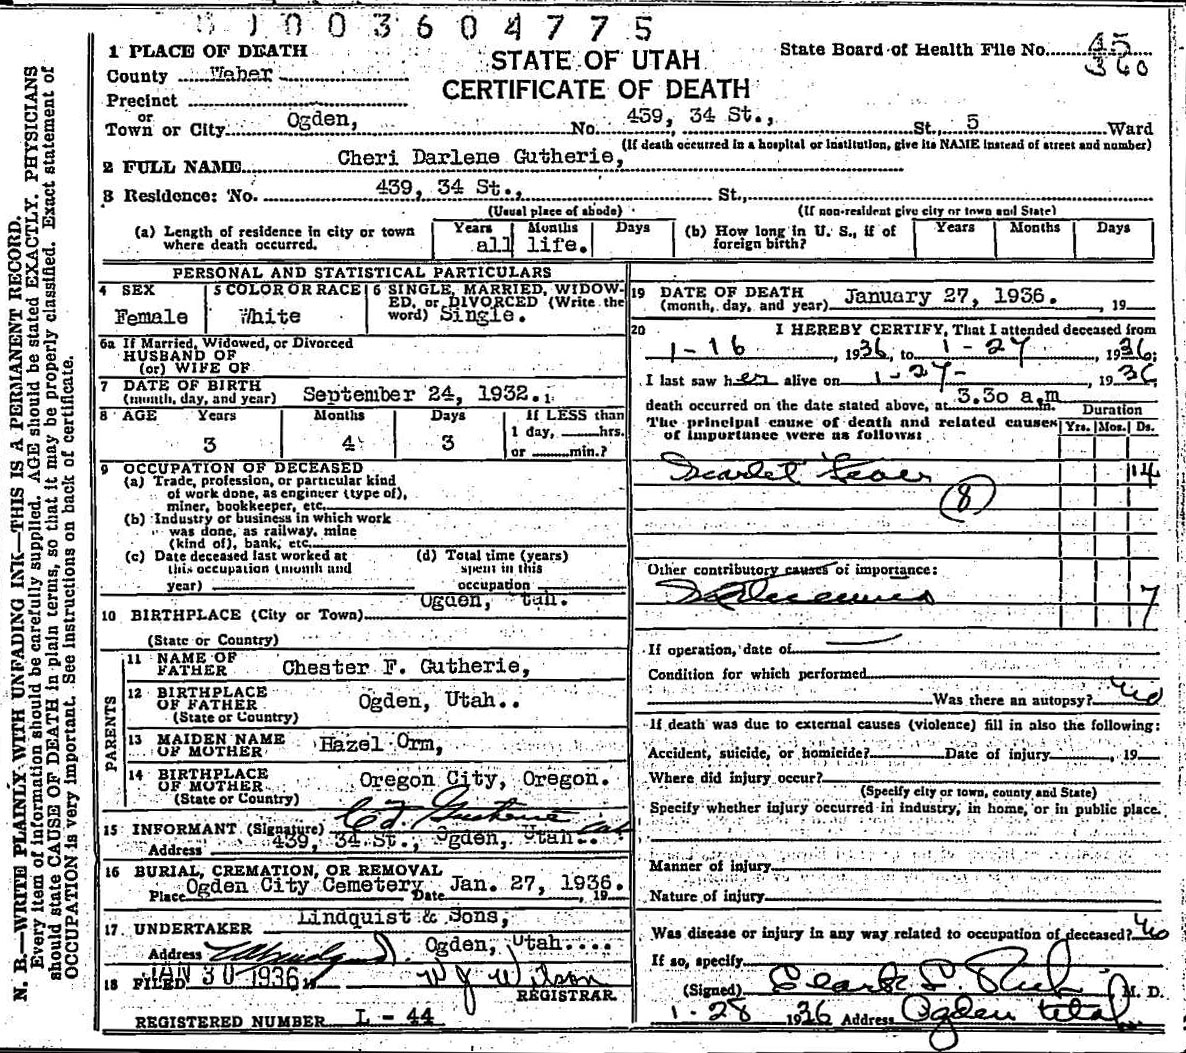 003604775
1 PLACE OF DEATH
STATE OF UTAH
CERTIFICATE OF DEATH
State Board of Health File No. 45
360
County Weber
Precinct
or
Town or City Ogden, No. 439, 34 St., St., 5 Ward
(If death occurred in a hospital or institution, give its NAME instead of street and number)
2 FULL NAME Cheri Darlene Gutherie,
3 Residence: No. 439, 34 St., St.,
(Usual place of abode) (If non-resident give city or town and State)
(a) Length of residence in city or town where death occurred. Years Months Days all life.
(b) How long in U. S., if of foreign birth? Years Months Days
PERSONAL AND STATISTICAL PARTICULARS
4 SEX Female
5 COLOR OR RACE White
6 SINGLE, MARRIED, WIDOW-
ED, or DIVORCED (Write the
word) Single.
6a If Married, Widowed, or Divorced
HUSBAND OF
(or) WIFE OF
7 DATE OF BIRTH
(month, day, and year) September 24, 1932.
8 AGE Years Months Days If LESS than
3 4 3 1 day, hrs.
or min.?
9 OCCUPATION OF DECEASED
(a) Trade, profession, or particular kind
of work done, as engineer (type of),
miner, bookkeeper, etc.
(b) Industry or business in which work
was done, as railway, mine
(kind of), bank, etc.
(c) Date deceased last worked at
this occupation (month and
year)
(d) Total time (years)
spent in this
occupation
10 BIRTHPLACE (City or Town) Ogden, Utah.
(State or Country)
PARENTS
11 NAME OF
FATHER Chester F. Gutherie,
12 BIRTHPLACE
OF FATHER Ogden, Utah..
(State or Country)
13 MAIDEN NAME
OF MOTHER Hazel Orm,
14 BIRTHPLACE
OF MOTHER Oregon City, Oregon.
(State or Country)
15 INFORMANT (Signature) C F Gutherie
Address 439, 34 St., Ogden, Utah..
16 BURIAL, CREMATION, OR REMOVAL
Place Ogden City Cemetery Date Jan. 27, 1936. , 19
17 UNDERTAKER Lindquist & Sons,
Address Ogden, Utah....
18 FILED JAN 30 1936 19 W J Wilson
REGISTRAR.
REGISTERED NUMBER L - 44
19 DATE OF DEATH
(month, day, and year) January 27, 1936. , 19
20 I HEREBY CERTIFY, That I attended deceased from
1-16, 1936, to 1-27, 1936;
I last saw her alive on 1-27-, 1936
death occurred on the date stated above, at 3.30 a.m.
The principal cause of death and related causes
of importance were as follows:
Duration
Yrs. Mos. Ds.
Scarlet Fever 14
(8)
Other contributory causes of importance:
7
If operation, date of
Condition for which performed
Was there an autopsy? No
If death was due to external causes (violence) fill in also the following:
Accident, suicide, or homicide? Date of injury , 19
Where did injury occur?
(Specify city or town, county and State)
Specify whether injury occurred in industry, in home, or in public place.
Manner of injury
Nature of injury
Was disease or injury in any way related to occupation of deceased? No
If so, specify
(Signed) Clark L. Rich M. D.
1-28 1936 Address Ogden Utah
N. B.—WRITE PLAINLY WITH UNFADING INK—THIS IS A PERMANENT RECORD.
Every item of information should be carefully supplied. AGE should be stated EXACTLY. PHYSICIANS
should state CAUSE OF DEATH in plain terms, so that it may be properly classified. Exact statement of
OCCUPATION is very important. See instructions on back of certificate.